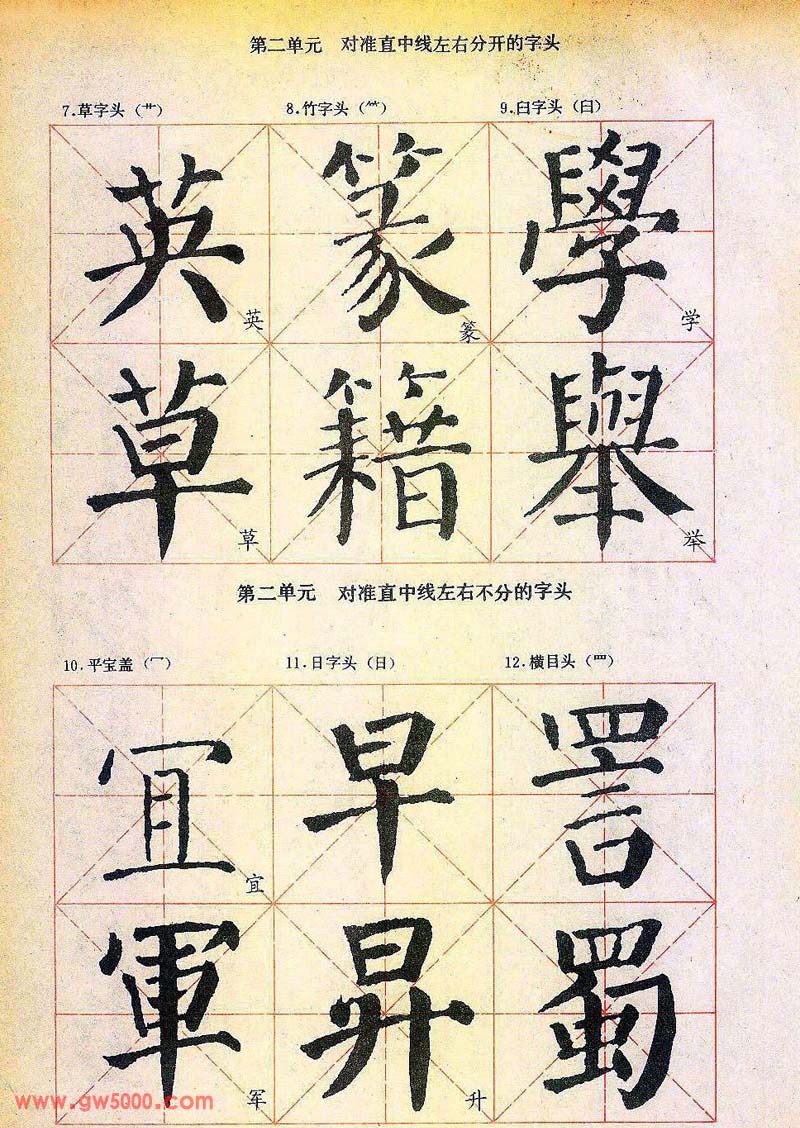 第二单元 对准直中线左右分开的字头
7.草字头（艹） 8.竹字头（⺮） 9.臼字头（臼）
英 篆 學
英 篆 学
草 籍 舉
草 举
第二单元 对准直中线左右不分的字头
10.平宝盖（冖） 11.日字头（日） 12.横目头（罒）
冝 早
宜
軍 昇 蜀
军 升
www.gw5000.com